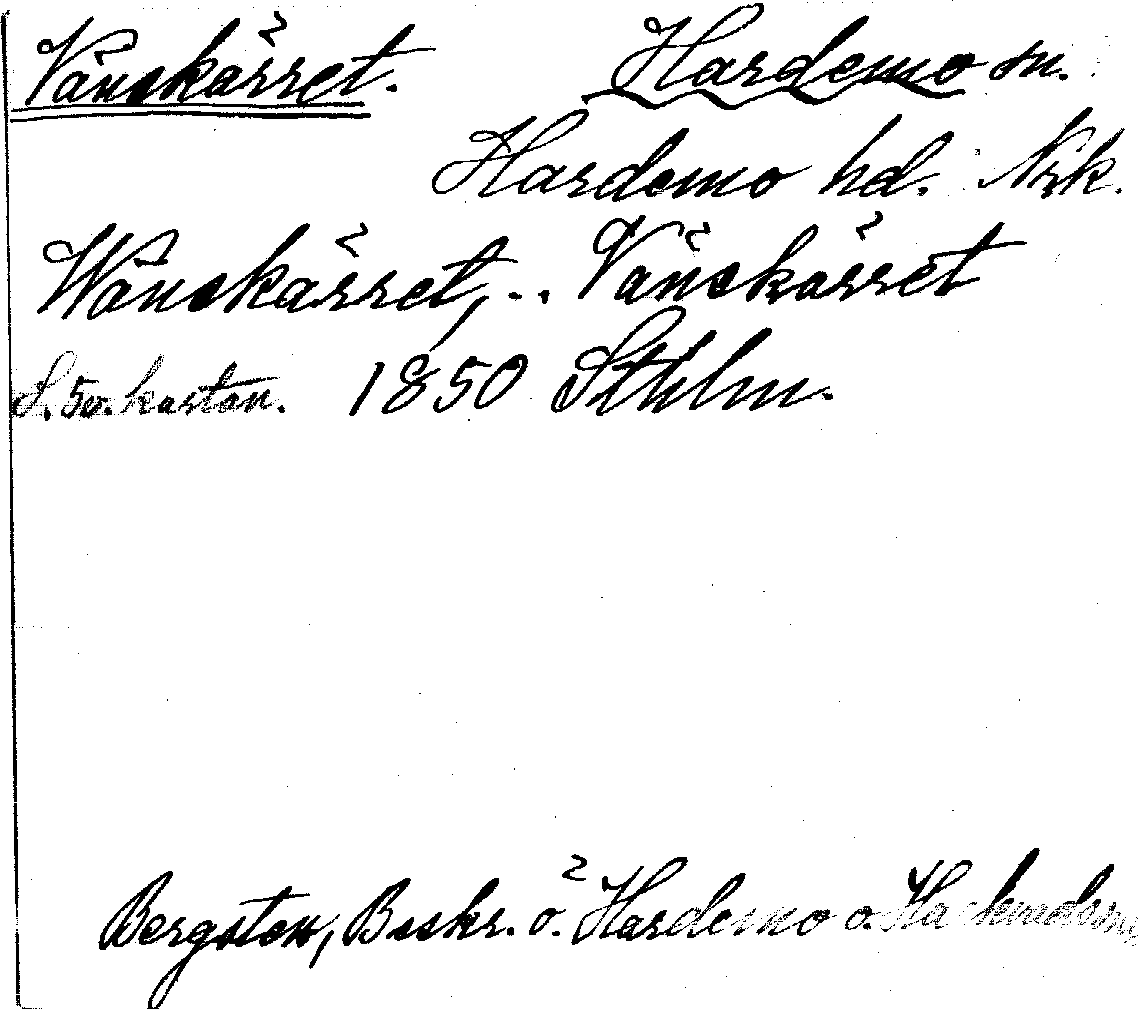 Vänskärret. Hardemo sn.
Hardemo hd. Nrk.
Wänskärret, .. Vänskärret
S. 50. kartan. 1850 Sthlm.
Bergsten, Beskr. ö. Hardemo o. Hackvads snr